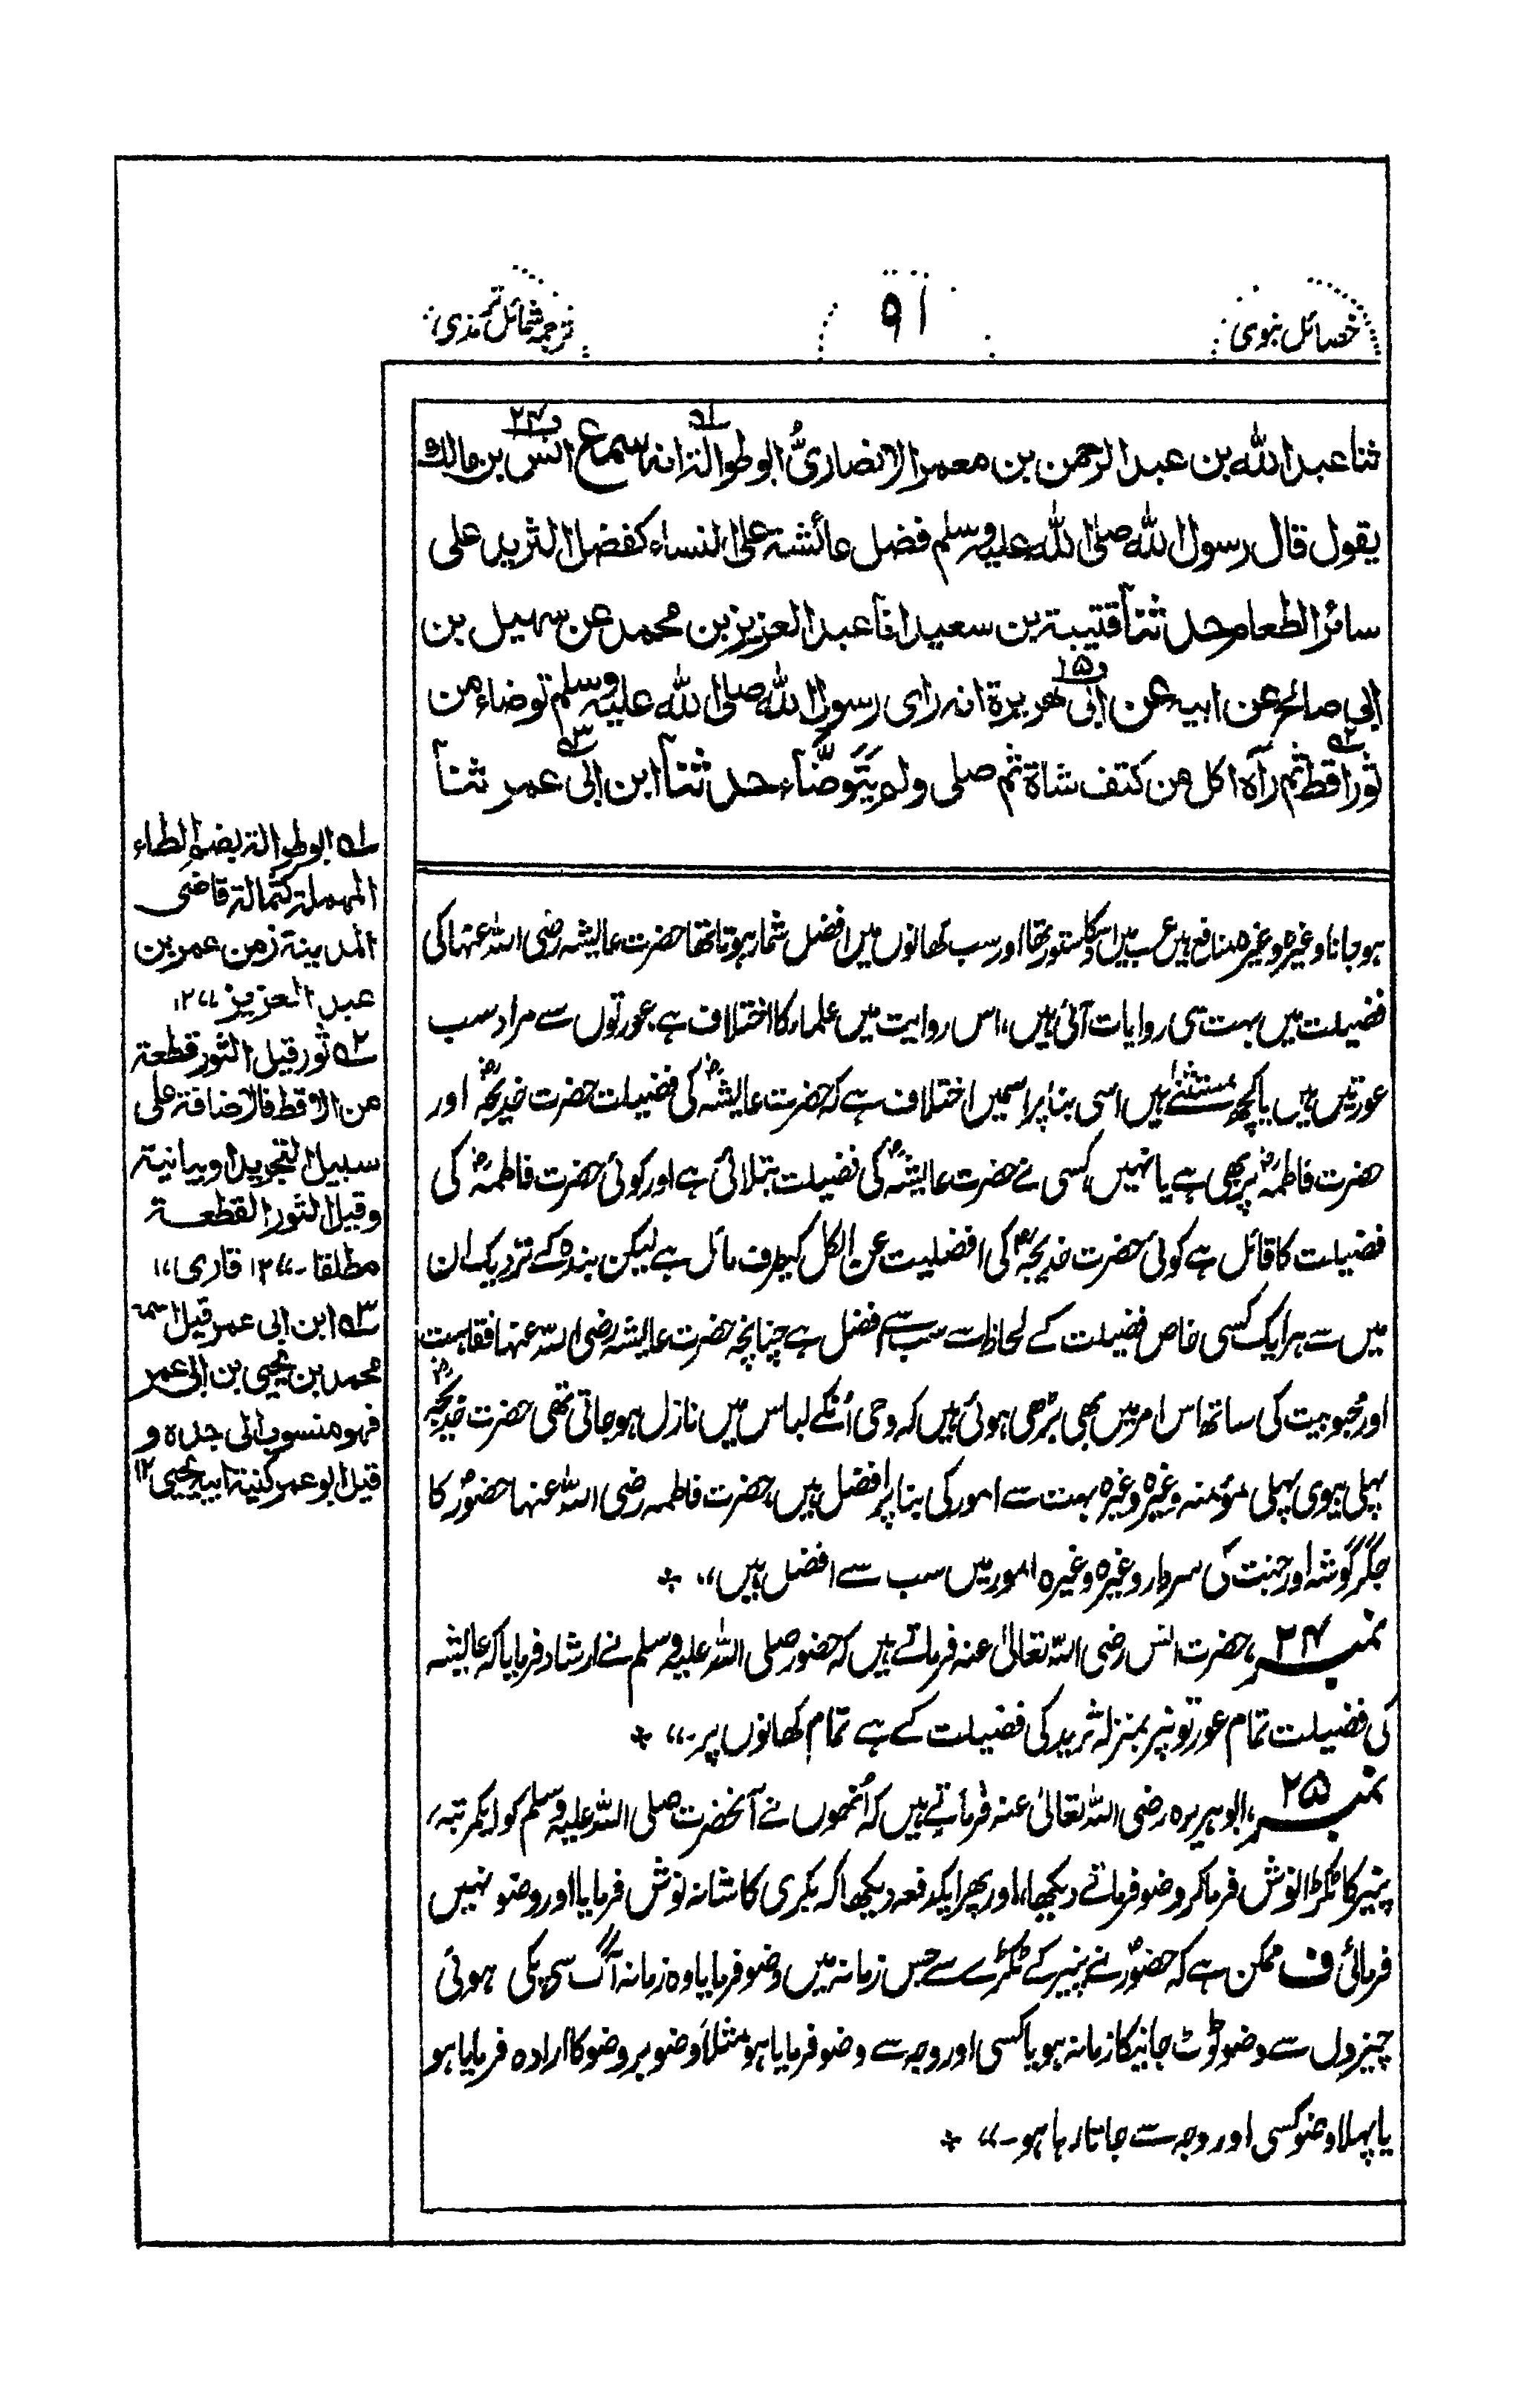 خصائل نبوی
۹۱
ترجمہ شمائل ترمذی
ثنا عبد الله بن عبد الرحمن بن معمر الانصاریُّ ابو طوالة انه سمع انس بن مالك
يقول قال رسول الله صلی الله عليه وسلم فضل عائشة علی النساء كفضل الثريد علی
سائر الطعام حدثنا قتيبة بن سعيد انا عبد العزيز بن محمد عن سهيل بن
ابی صالح عن ابيه عن ابی هريرة انه رای رسول الله صلی الله عليه وسلم توضاء من
ثور اقط ثم رآه اكل من كتف شاة ثم صلی ولم يتوضّأ، حدثنا ابن ابی عمر ثنا
ہوجانا وغیرہ وغیرہ منافع ہیں عرب میں اسکا دستور تھا اور سب کھانوں میں افضل شمار ہوتا تھا حضرت عایشہ رضی اللہ عنہا کی
فضیلت میں بہت سی روایات آئی ہیں، اس روایت میں علماء کا اختلاف ہے۔ عورتوں سے مراد سب
عورتیں ہیں یا کچھ مستثنیٰ ہیں اسی بنا پر اسمیں اختلاف ہے کہ حضرت عایشہؓ کی فضیلت حضرت خدیجہؓ اور
حضرت فاطمہؓ پر بھی ہے یا نہیں، کسی نے حضرت عایشہؓ کی فضیلت بتلائی ہے اور کوئی حضرت فاطمہؓ کی
فضیلت کا قائل ہے کوئی حضرت خدیجہؓ کی افضلیت عن الکل کیطرف مائل ہے لیکن بندہ کے نزدیک ان
میں سے ہر ایک کسی خاص فضیلت کے لحاظ سے سب سے افضل ہے چنانچہ حضرت عایشہ رضی اللہ عنہا فقاہت
اور محبوبیت کی ساتھ اس امر میں بھی بڑھی ہوئی ہیں کہ وحی اُنکے لباس میں نازل ہوجاتی تھی حضرت خدیجہؓ
پہلی بیوی پہلی مؤمنہ وغیرہ وغیرہ بہت سے امور کی بنا پر افضل ہیں، حضرت فاطمہ رضی اللہ عنہا حضورؐ کا
جگر گوشہ اور جنت کی سردار وغیرہ وغیرہ امور میں سب سے افضل ہیں،،
نمبر ۲۴، حضرت انس رضی اللہ تعالیٰ عنہ فرماتے ہیں کہ حضور صلی اللہ علیہ وسلم نے ارشاد فرمایا کہ عایشہ
کی فضیلت تمام عورتونپر بمنزلہ ثرید کی فضیلت کے ہے تمام کھانوں پر۔،،
نمبر ۲۵، ابو ہریرہ رضی اللہ تعالیٰ عنہ فرماتے ہیں کہ اُنھوں نے آنحضرت صلی اللہ علیہ وسلم کو ایکمرتبہ
پنیر کا ٹکڑا نوش فرماکر وضو فرماتے دیکھا، اور پھر ایکدفعہ دیکھا کہ بکری کا شانہ نوش فرمایا اور وضو نہیں
فرمائی ف ممکن ہے کہ حضورؐ نے پنیر کے ٹکڑے سے جس زمانہ میں وضو فرمایا وہ زمانہ آگ سی پکی ہوئی
چیزوں سے وضو ٹوٹ جانیکا زمانہ ہو یا کسی اور وجہ سے وضو فرمایا ہو مثلاً وضو پر وضو کا ارادہ فرمایا ہو
یا پہلا وضو کسی اور وجہ سے جاتا رہا ہو۔،،
له ابو طوالة بضم الطاء
المهملة كثمالة قاضی
المدينة زمن عمر بن
عبد العزيز ۱۲،،
۲ه ثور قيل الثور قطعة
من الاقط فالاضافة علی
سبيل التجريد او بيانية
وقيل الثور القطعة
مطلقا۔ ۱۲،، قاری،،
۳ه ابن ابی عمر قيل اسمه
محمد بن يحيی بن ابی عمر
فهو منسوب الی جده و
قيل ابو عمر كنية ابيه يحيی ۱۲